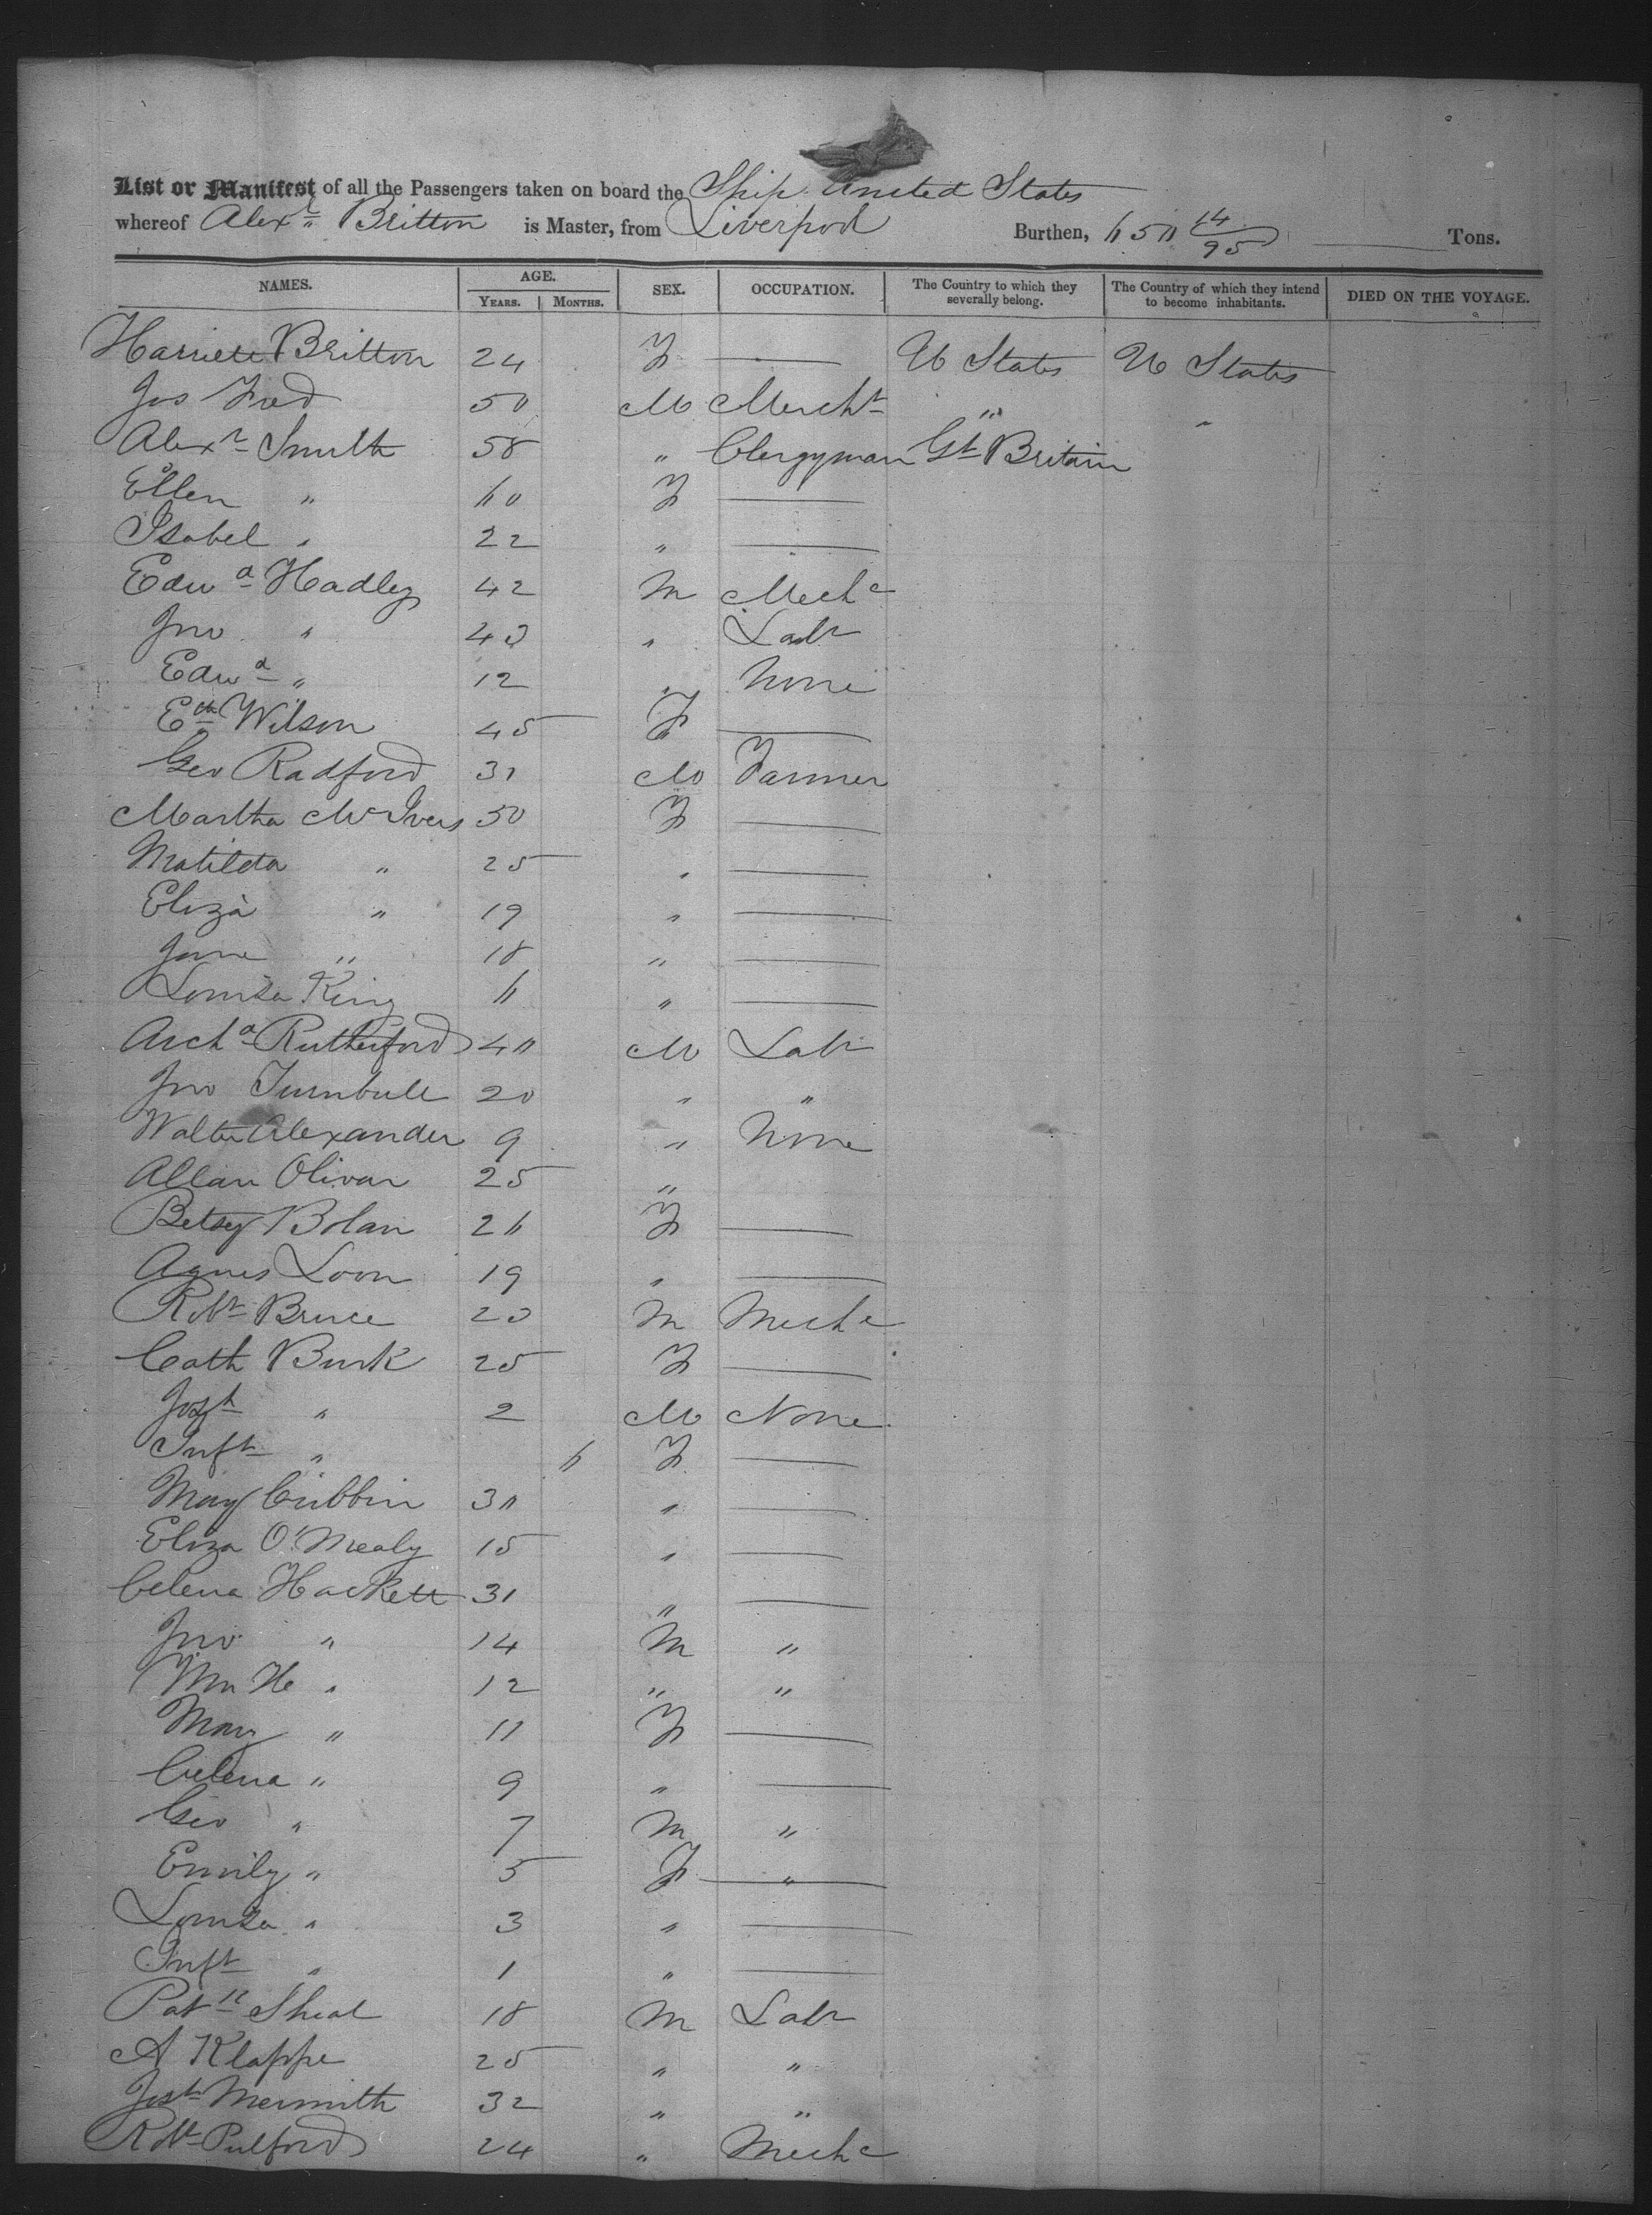 List or Manifest of all the Passengers taken on board the Ship United States
whereof Alexr Britton is Master, from Liverpool Burthen, 650 14/95 Tons.
NAMES. AGE. YEARS. MONTHS. SEX. OCCUPATION. The Country to which they severally belong. The Country of which they intend to become inhabitants. DIED ON THE VOYAGE.
Harriett Britton 24 F — U States U States
Jos 50 M Mercht " "
Alexr Smith 58 " Clergyman Gt Britain
Ellen " 60 F —
Isabel " 22 " —
Edwd Hadley 42 M Mechc
Jno " 43 " Labr
Edwd " 12 " None
Eth Wilson 45 F —
Geo Radford 31 M Farmer
Martha McIvers 50 F —
Matilda " 25 " —
Eliza " 19 " —
Jane " 18 " —
Louisa King 6 " —
Archd Rutherford 40 M Labr
Jno Turnbull 20 " "
Walter Alexander 9 " None
Allan Olivar 25 "
Betsy Bolan 26 F —
Agnes Loon 19 " —
Robt Bruce 23 M Mechc
Cath Burk 25 F —
Josh " 2 M None
Inft " 6 F —
Mary Cubbin 30 " —
Eliza O'Mealy 15 " —
Celena Hackett 31 " —
Jno " 14 M "
Wm He " 12 " "
Mary " 11 F —
Celena " 9 " —
Geo " 7 M "
Emily " 5 F "
Louisa " 3 " —
Inft " 1 " —
Patk Sheal 18 M Labr
A Klappe 25 " "
Josh Mermith 32 " "
Robt Pulford 24 " Mechc